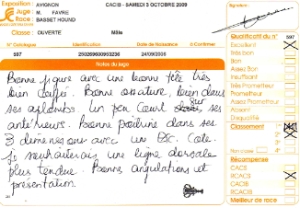 Exposition
AVIGNON
CACIB - SAMEDI 3 OCTOBRE 2009
Age
M. FAVRE
Race
BASSET HOUND
Signature
Classe
OUVERTE
Mâle
N° Catalogue
Identification
Date de Naissance
A Confirmer
Qualificatif du n° 597
597
24/09/2006
Notes du juge
Excellent
Très Bon
Bon
Bonne figure avec une bonne tête très
bien coiffée. Bonne ossature, bien dans
ses aplombs. Un peu court sur ses
antérieurs. Bonne poitrine dans ses
3 dimensions avec un exc. côte.
Je souhaiterais une ligne dorsale
plus tendue. Bonne angulations et
présentation.
Assez Bon
Insuffisant
Très Prometteur
Assez Prometteur
Disqualifié
Classement
1er
2ème
3ème
4ème
NCL
Récompense
CACS
RCACS
CACIB
RCACIB
Meilleur de race